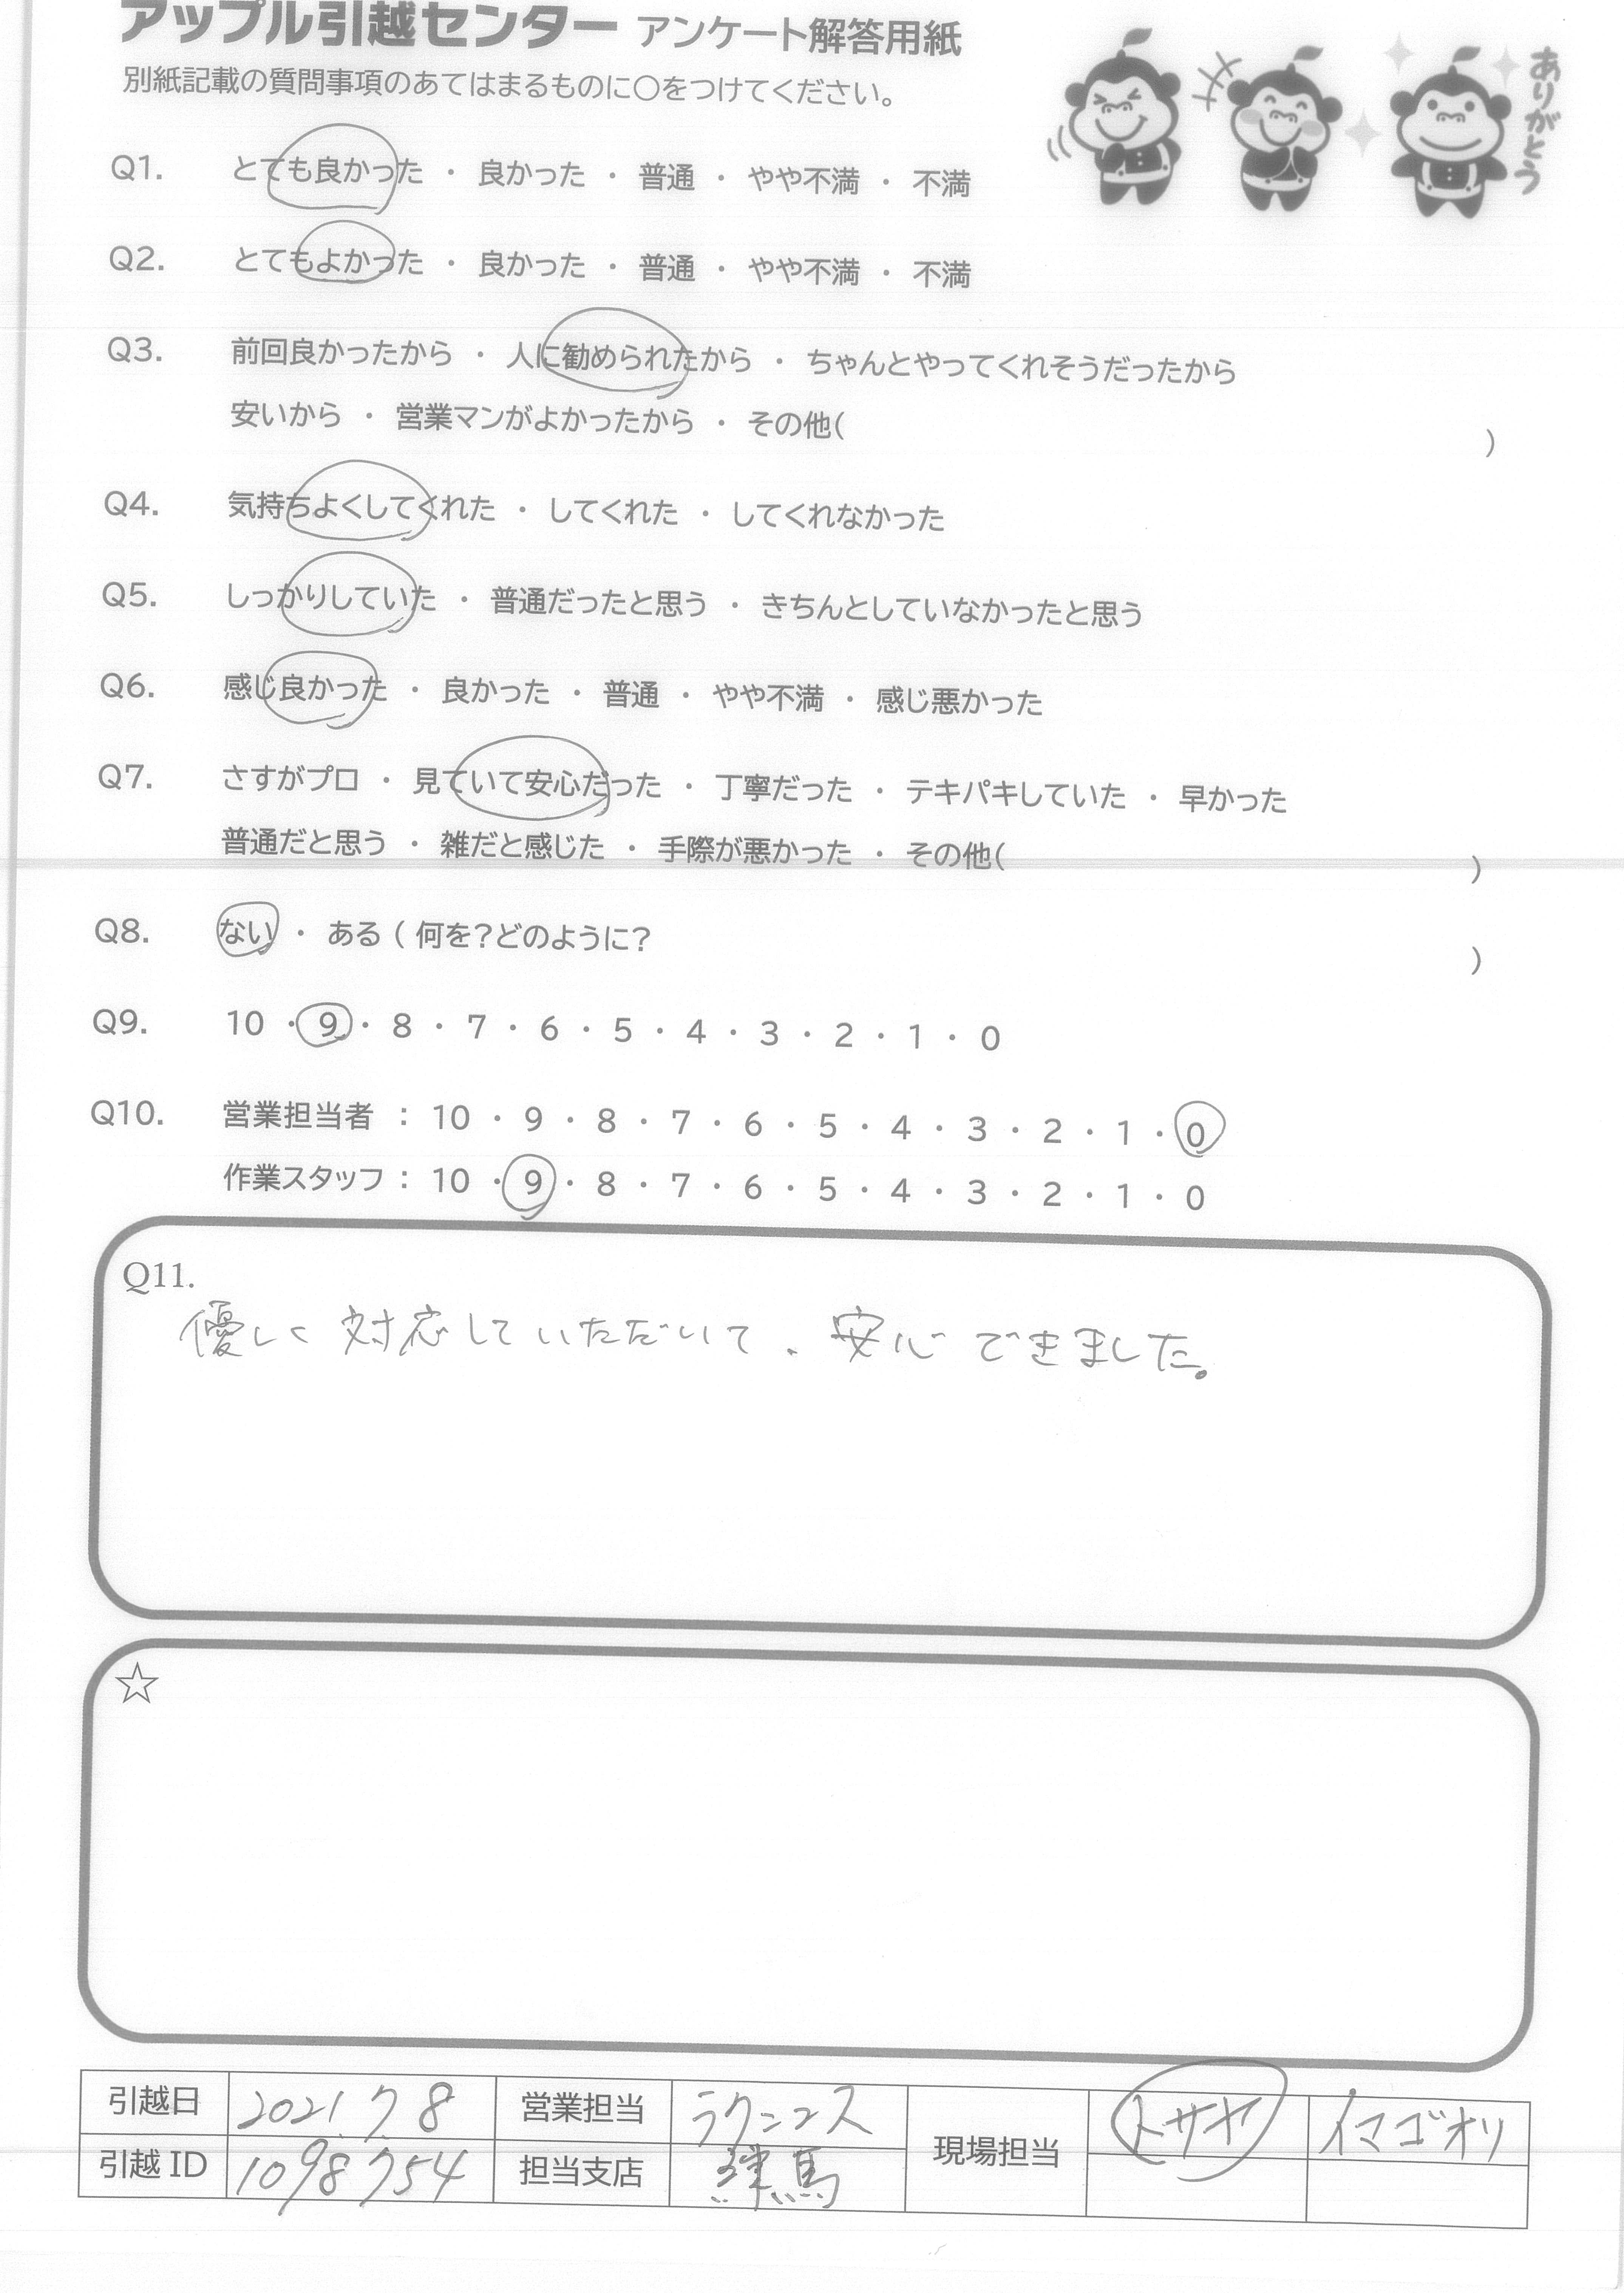 アップル引越センター アンケート解答用紙
別紙記載の質問事項のあてはまるものに〇をつけてください。
ありがとう
Q1. とても良かった ・ 良かった ・ 普通 ・ やや不満 ・ 不満
Q2. とてもよかった ・ 良かった ・ 普通 ・ やや不満 ・ 不満
Q3. 前回良かったから ・ 人に勧められたから ・ ちゃんとやってくれそうだったから
安いから ・ 営業マンがよかったから ・ その他( )
Q4. 気持ちよくしてくれた ・ してくれた ・ してくれなかった
Q5. しっかりしていた ・ 普通だったと思う ・ きちんとしていなかったと思う
Q6. 感じ良かった ・ 良かった ・ 普通 ・ やや不満 ・ 感じ悪かった
Q7. さすがプロ ・ 見ていて安心だった ・ 丁寧だった ・ テキパキしていた ・ 早かった
普通だと思う ・ 雑だと感じた ・ 手際が悪かった ・ その他( )
Q8. ない ・ ある ( 何を?どのように? )
Q9. 10 ・ 9 ・ 8 ・ 7 ・ 6 ・ 5 ・ 4 ・ 3 ・ 2 ・ 1 ・ 0
Q10. 営業担当者 : 10 ・ 9 ・ 8 ・ 7 ・ 6 ・ 5 ・ 4 ・ 3 ・ 2 ・ 1 ・ 0
作業スタッフ : 10 ・ 9 ・ 8 ・ 7 ・ 6 ・ 5 ・ 4 ・ 3 ・ 2 ・ 1 ・ 0
Q11.
優しく対応していただいて、安心できました。
☆
引越日 2021.7.8 営業担当 ラクニコス 現場担当 トサヤ イマゴオリ
引越ID 1098754 担当支店 練馬